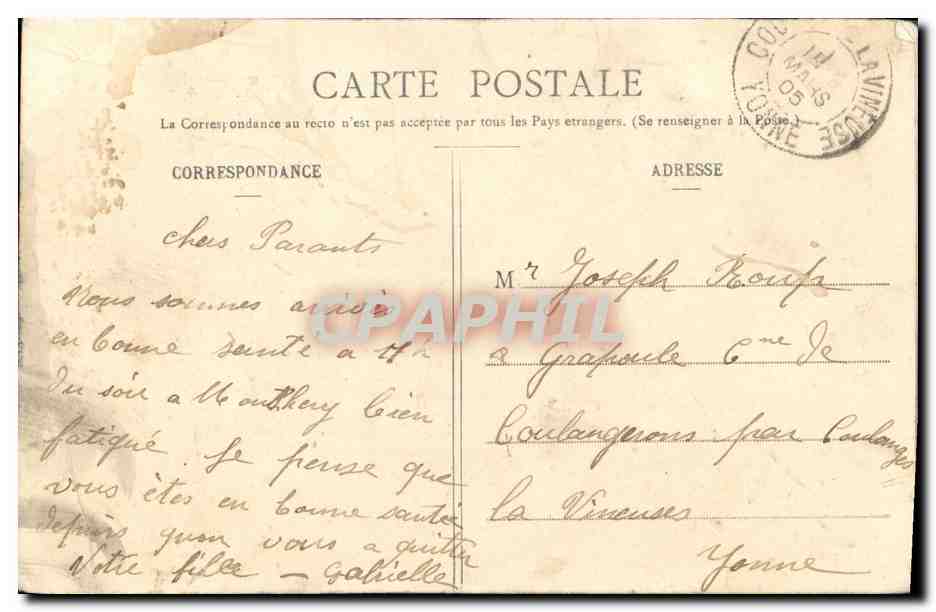 CARTE POSTALE
La Correspondance au recto n'est pas acceptée par tous les Pays etrangers. (Se renseigner à la Poste.)
CORRESPONDANCE
chers Parants
Nous sommes arrivée
en bonne santé a 4h
du soir a Montlhery bien
fatigué. Je pense que
vous êtes en bonne santée
depuis quon vous a quitter
Votre fille — Gabrielle
ADRESSE
Mr Joseph
a Grapoule Cne de
Coulangerons par Coulanges
la Vineuses
Yonne
LA VINEUSE
MARS
05
YONNE
CPAPHIL